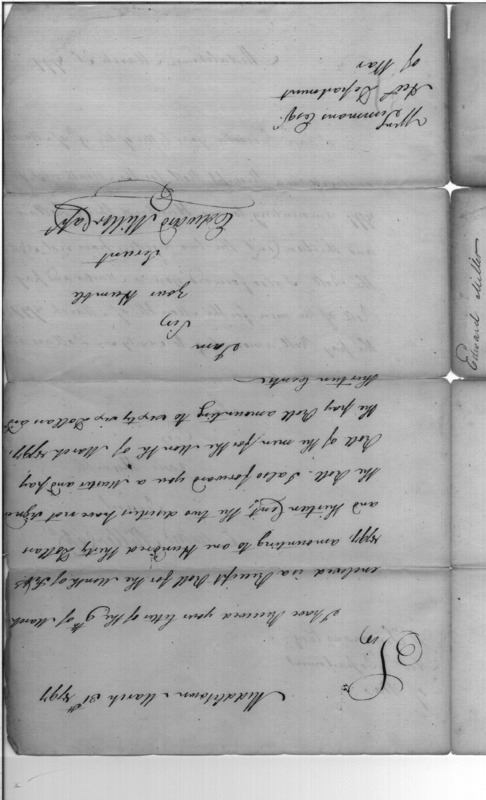 Middletown March 31st 1797
Sir
I have Received your letter of the 9th of March
enclosed is a Receipt Roll for the Month of Feby
1797, amounting to one Hundred thirty Dollars
and thirteen Cents, the two deserters have not signed
the Roll. I also forward you a Muster and pay
Roll of the men for the Month of March 1797,
the pay Roll amounting to sixty six Dollars and
thirteen Cents
I am
Sir
your Humble
Servant
Edward Miller Capt
Wm Simmons Esqr
Acct Department
of War
Edward Miller